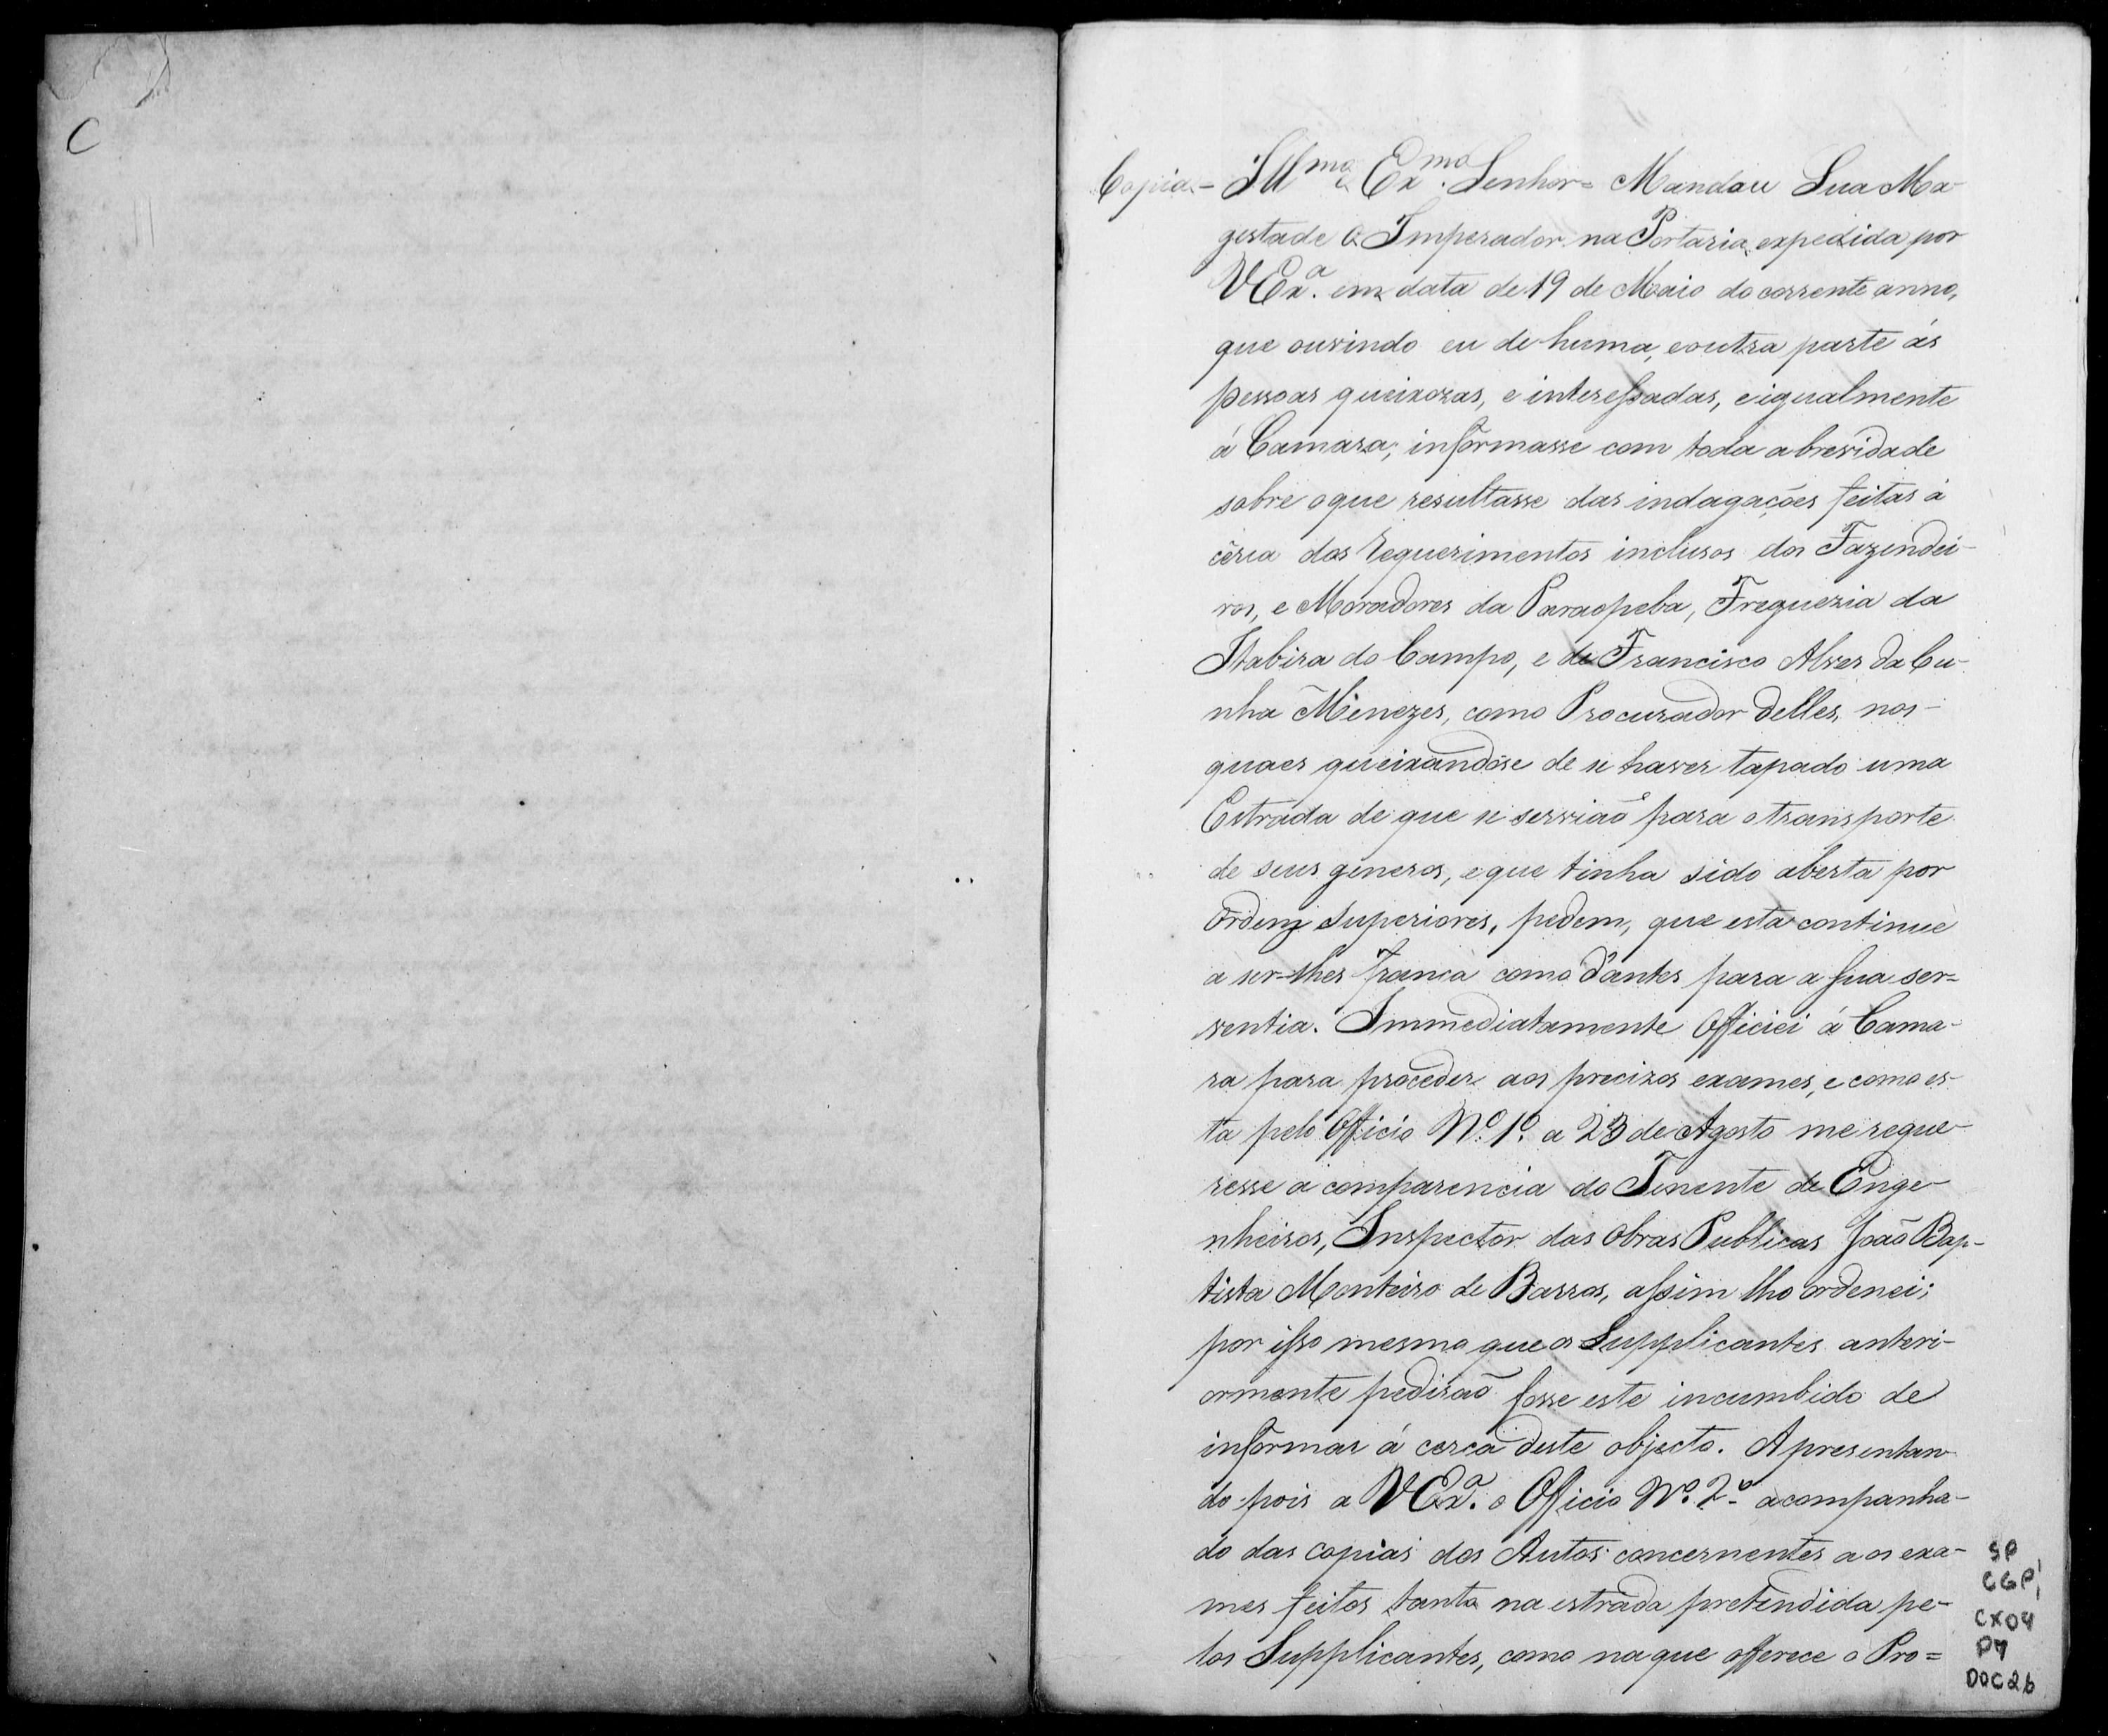 C
Copia - Ill.mo e Ex.mo Senhor = Mandou Sua Ma-
gestade O Imperador na Portaria expedida por
VEx.a em data de 19 de Maio do corrente anno,
que ouvindo eu de huma, e outra parte ás
pessoas queixozas, e interessadas, e igualmente
á Camara; informasse com toda a brevidade
sobre o que resultasse das indagações feitas á
cêrca dos Requerimentos inclusos dos Fazendei-
ros, e Moradores da Paraopeba, Freguezia da
Itabira do Campo, e de Francisco Alves da Cu-
nha Menezes, como Procurador delles, nos
quaes queixandose de se haver tapado uma
Estrada de que se servião para o transporte
de seus generos, e que tinha sido aberta por
Ordens Superiores, pedem, que esta continue
a ser-lhes franca como d'antes para a sua ser=
ventia. Immediatamente Officiei á Cama-
ra para proceder aos precizos exames, e como es-
ta pelo Officio N.º 1.º a 23 de Agosto me reque-
resse a comparencia do Tenente de Enge-
nheiros, Inspector das Obras Publicas João Bap-
tista Monteiro de Barros, assim lho ordenei;
por isso mesmo que os Supplicantes anteri-
ormente pedirão fosse este incumbido de
informar á cerca deste objecto. Apresentan-
do pois a VEx.a o Officio N.º 2.º acompanha-
do das copias dos Autos concernentes aos exa-
mes feitos tanto na estrada pretendida pe-
los Supplicantes, como na que offerece o Pro=
SP
CGP1
CX04
P7
DOC26